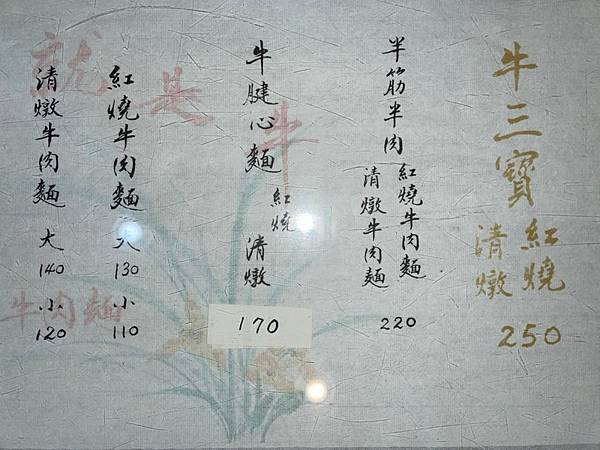 牛三寶
紅燒
清燉
250
半筋半肉
紅燒牛肉麵
清燉牛肉麵
220
牛腱心麵
紅燒
清燉
170
紅燒牛肉麵
大
130
小
110
清燉牛肉麵
大
140
小
120
就是牛
牛肉麵